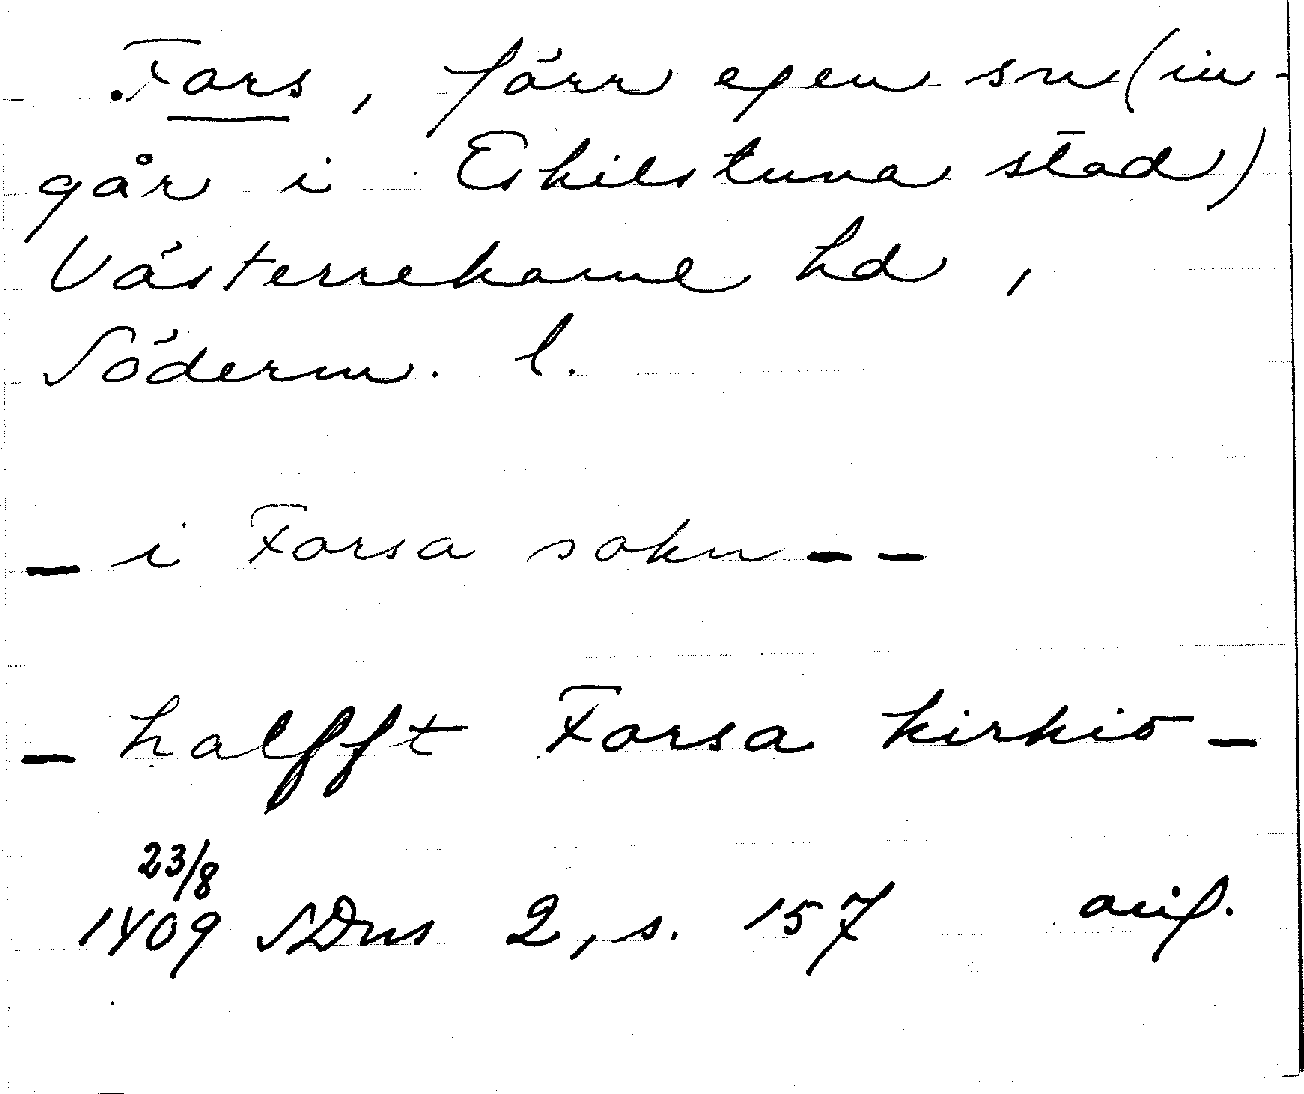 Fors, förr egen sn (in-
går i Eskilstuna stad)
Västerrekarne hd,
Söderm. l.
– i Forsa sokn – –
– halfft Forsa kirkio –
23/8
1409 SDns 2, s. 157 orig.